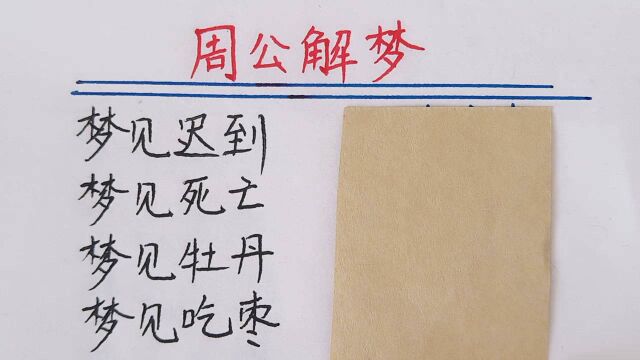 周公解梦
梦见迟到
梦见死亡
梦见牡丹
梦见吃枣